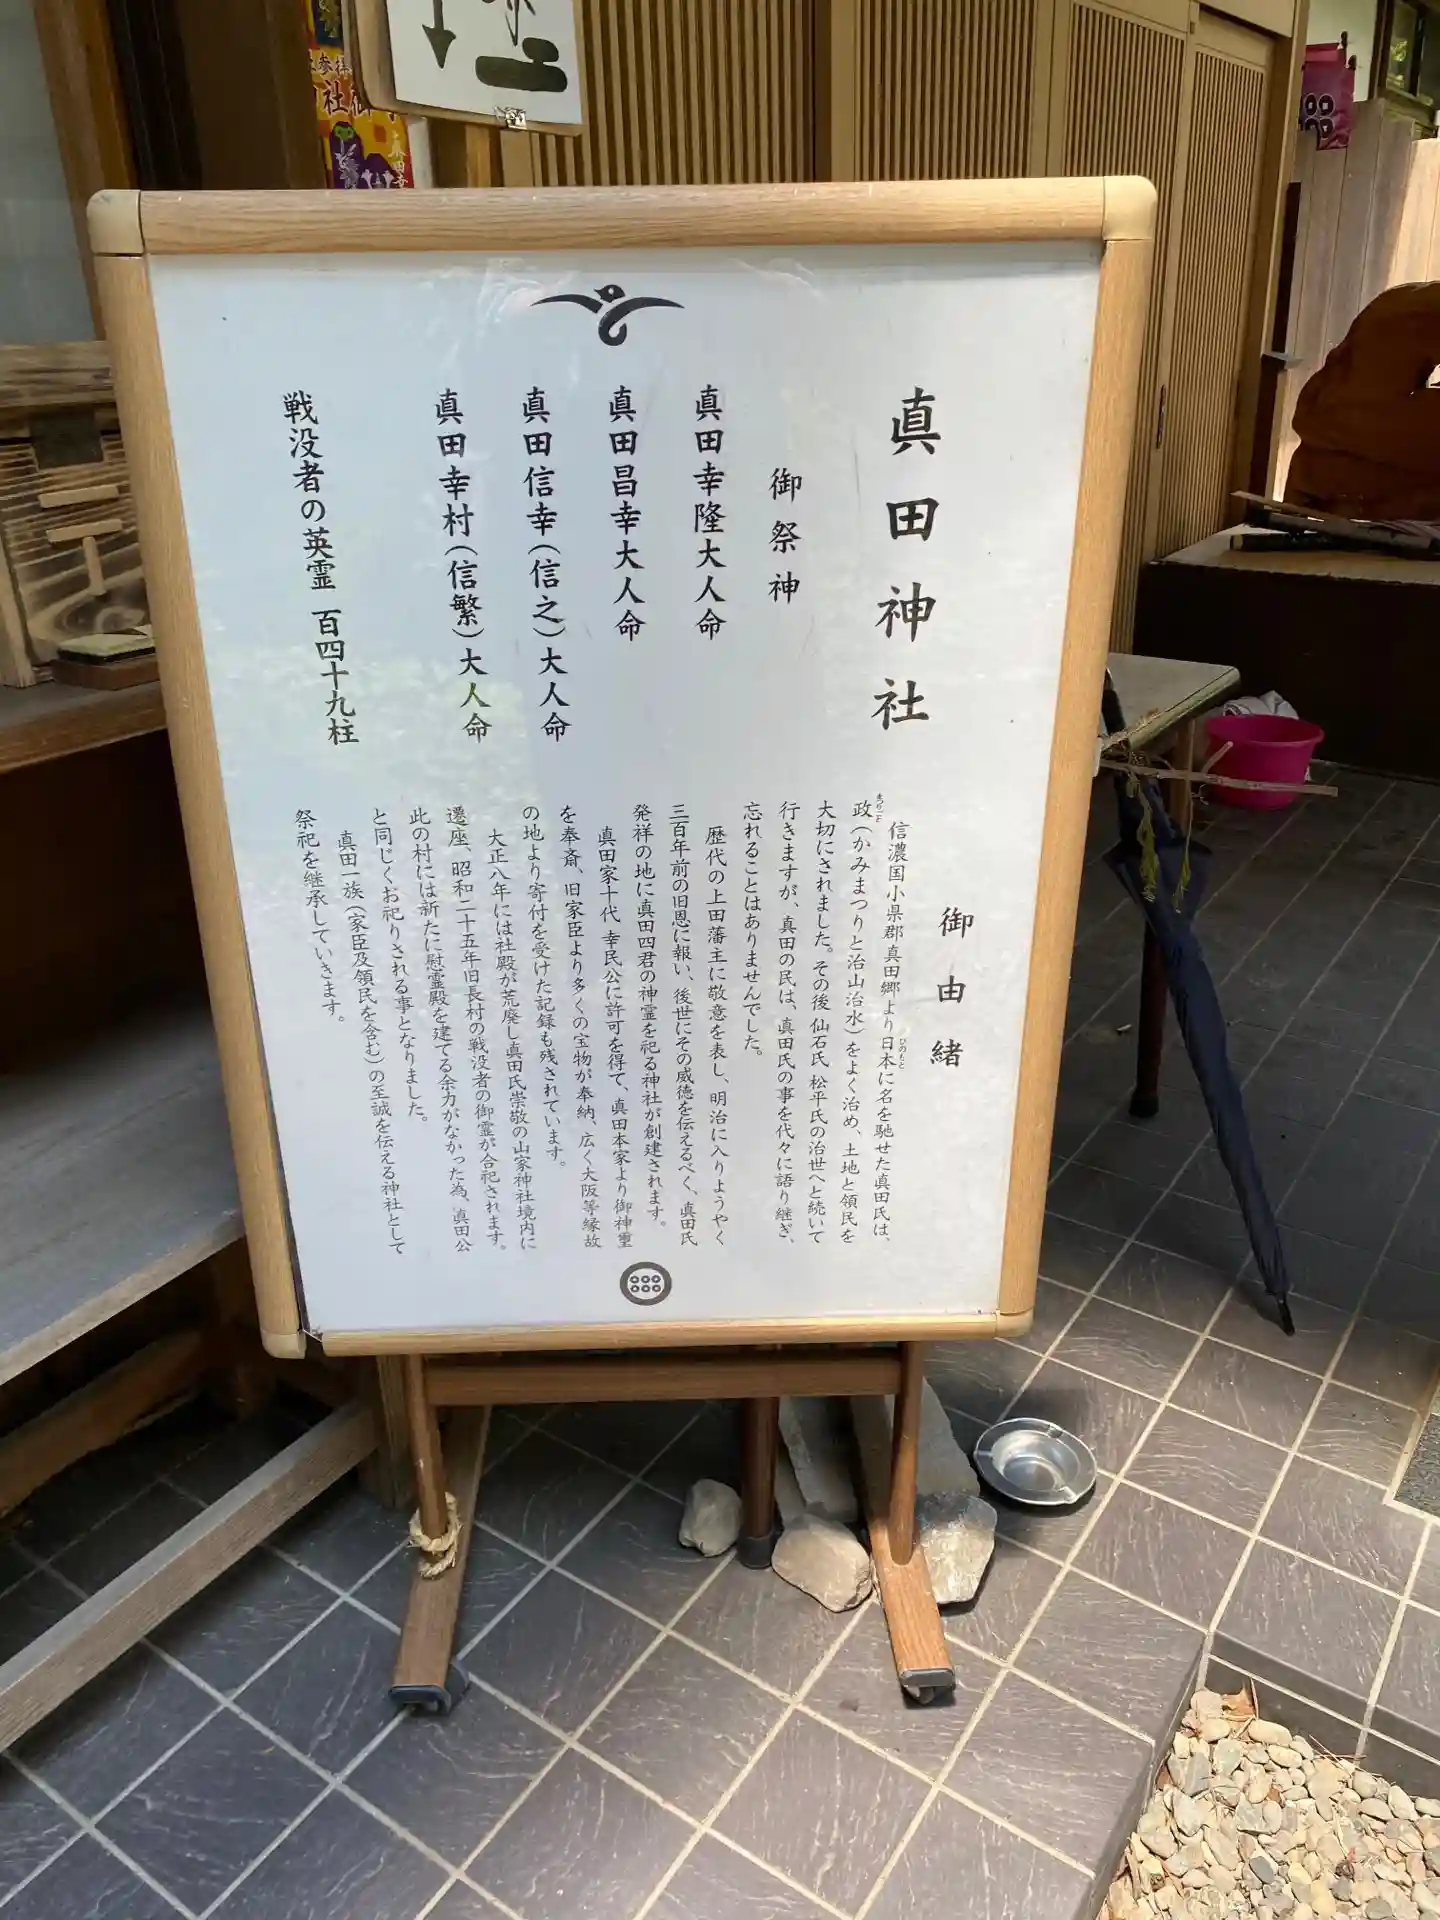 真田神社
御祭神
真田幸隆大人命
真田昌幸大人命
真田信幸(信之)大人命
真田幸村(信繁)大人命
戦没者の英霊 百四十九柱
御由緒
信濃国小県郡真田郷より日本に名を馳せた真田氏は、
政(かみまつりと治山治水)をよく治め、土地と領民を
大切にされました。その後 仙石氏 松平氏の治世へと続いて
行きますが、真田の民は、真田氏の事を代々に語り継ぎ、
忘れることはありませんでした。
歴代の上田藩主に敬意を表し、明治に入りようやく
三百年前の旧恩に報い、後世にその威徳を伝えるべく、真田氏
発祥の地に真田四君の神霊を祀る神社が創建されます。
真田家十代 幸民公に許可を得て、真田本家より御神璽
を奉斎、旧家臣より多くの宝物が奉納、広く大阪等縁故
の地より寄付を受けた記録も残されています。
大正八年には社殿が荒廃し真田氏崇敬の山家神社境内に
遷座、昭和二十五年旧長村の戦没者の御霊が合祀されます。
此の村には新たに慰霊殿を建てる余力がなかった為、真田公
と同じくお祀りされる事となりました。
真田一族(家臣及領民を含む)の至誠を伝える神社として
祭祀を継承していきます。